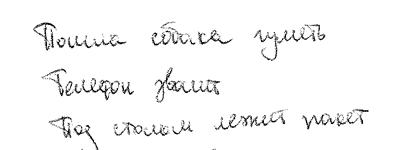 Пошла собака гулеть
Телефон званит
Под столом лежит пакет